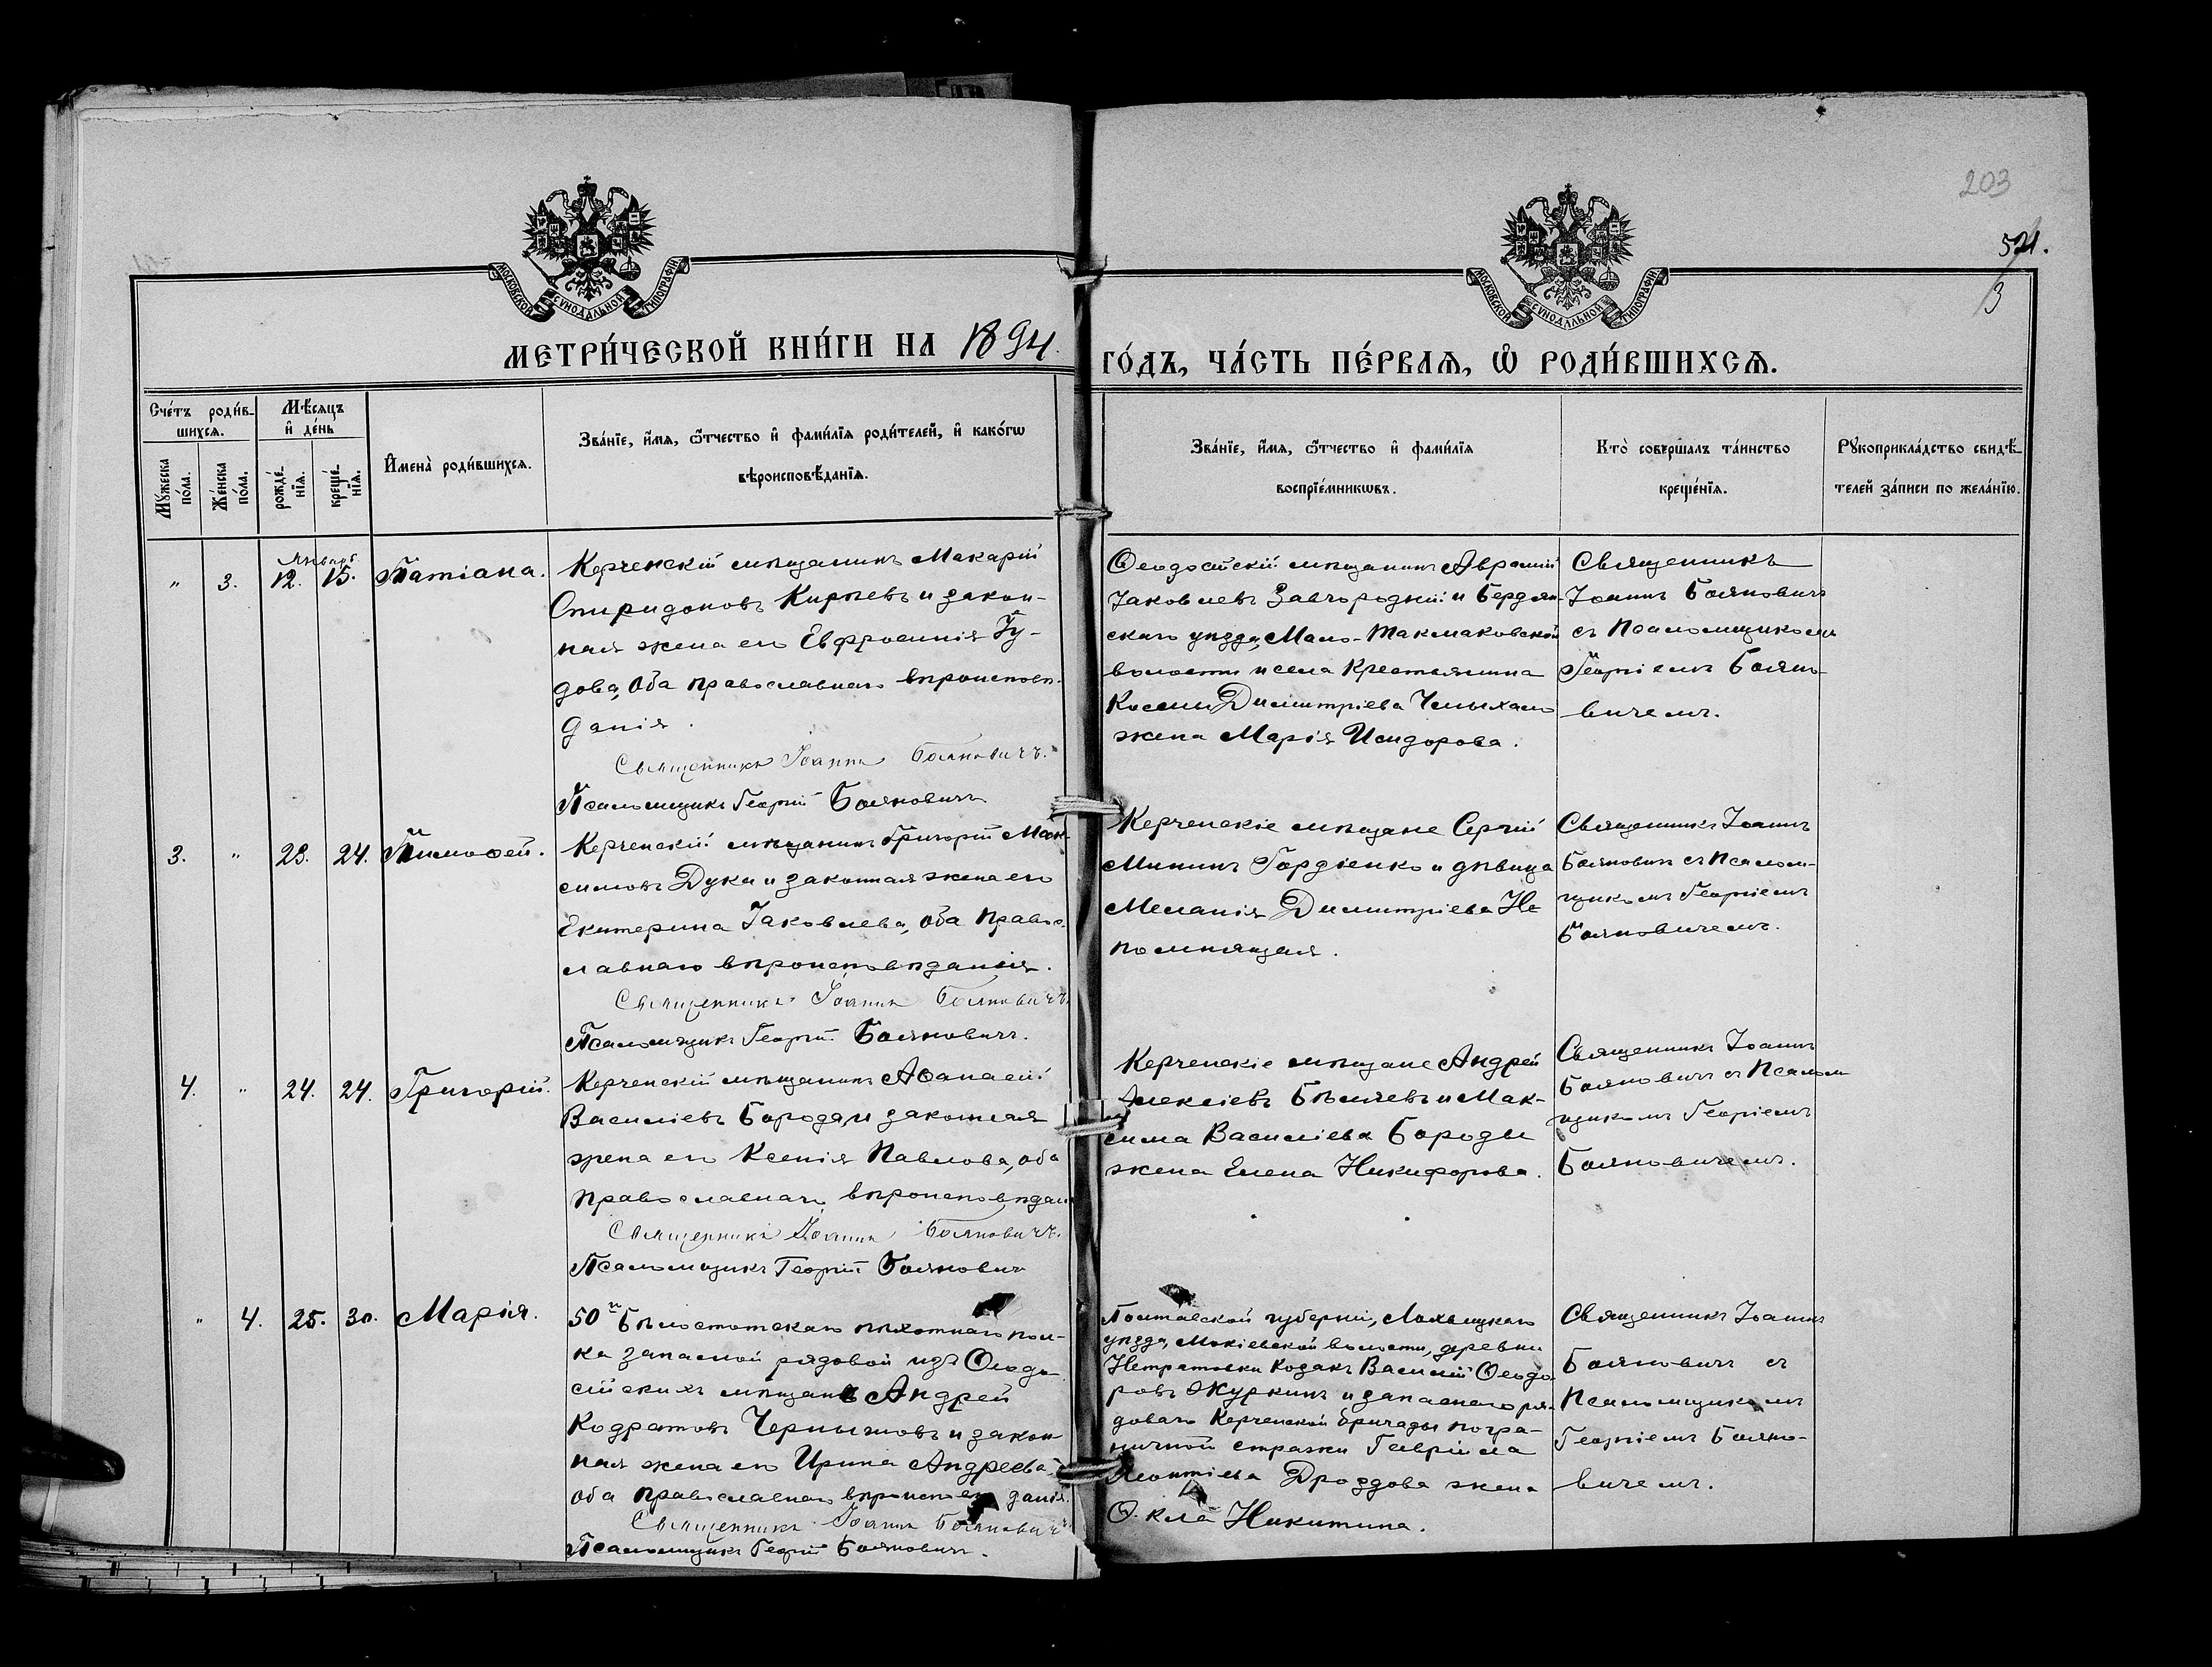 203
521.
3
МОСКОВСКОЙ СѴНОДАЛЬНОЙ ТИПОГРАФІИ
МОСКОВСКОЙ СѴНОДАЛЬНОЙ ТИПОГРАФІИ
МЕТРИ́ЧЕСКОЙ КНИ́ГИ НА 1894
ГО́ДЪ, ЧА́СТЬ ПЕ́РВАѦ, Ѡ҆ РОДИ́ВШИХСѦ.
Сче́тъ роди́в-
шихсѧ.
Мꙋ́жеска по́ла.
Же́нска по́ла.
Мѣ́сѧцъ
и҆ де́нь
рожде́-
нїѧ.
креще́-
нїѧ.
И҆мена̀ роди́вшихсѧ.
Зва́нїе, и҆́мѧ, ѻ҆́тчество и҆ фами́лїѧ роди́телей, и҆ како́гѡ
вѣроисповѣ́данїѧ.
Зва́нїе, и҆́мѧ, ѻ҆́тчество и҆ фами́лїѧ
воспрїе́мникѡвъ.
Кто̀ соверша́лъ та́инство
креще́нїѧ.
Рꙋкоприкла́дство свидѣ́-
телей за́писи по жела́нїю.
Январь
" 3. 12. 15. Татіана.
Керченскій мѣщанинъ Макарій
Спиридоновъ Кирѣевъ и закон-
ная жена его Евфросинія Гу-
дова, оба православнаго вѣроисповѣ-
данія.
Священникъ Іоаннъ Бояновичъ.
Псаломщикъ Георгій Бояновичъ
Ѳеодосійскій мѣщанинъ Аврамій
Іаковлевъ Завгородній и Бердян-
скаго уѣзда, Мало-Токмаковской
волости и села Крестьянина
Космы Димитріева жена Марія Исидорова.
Священникъ
Іоаннъ Бояновичъ
съ Псаломщикомъ
Георгіемъ Бояно-
вичемъ.
3. " 23. 24. Тимоѳей.
Керченскій мѣщанинъ Григорій Мак-
симовъ Дука и законная жена его
Екатерина Іаковлева, оба правос-
лавнаго вѣроисповѣданія.
Священникъ Іоаннъ Бояновичъ.
Псаломщикъ Георгій Бояновичъ.
Керченскіе мѣщане Сергій
Мининъ Гордіенко и дѣвица
Меланія Димитріева Не
помнящая.
Священникъ Іоаннъ
Бояновичъ съ Псалом-
щикомъ Георгіемъ
Бояновичемъ.
4. " 24. 24. Григорій.
Керченскій мѣщанинъ Аѳанасій
Василіевъ Борода, и законная
жена его Ксенія Павлова, оба
православнаго вѣроисповѣдан
Священникъ Іоаннъ Бояновичъ.
Псаломщикъ Георгій Бояновичъ
Керченскіе мѣщане Андрей
Алексіевъ Бѣляевъ и Мак-
сима Василіева Бороды
жена Елена Никифорова.
Священникъ Іоаннъ
Бояновичъ съ Псалом
щикомъ Георгіемъ
Бояновичемъ.
" 4. 25. 30. Марія.
50й Бѣлостотскаго пѣхотнаго пол-
ка запасной рядовой изъ Ѳеодо-
сійскихъ мѣщанъ Андрей
Кодратовъ Чернышовъ и закон
ная жена его Ирина Андреева,
оба православнаго вѣроисповѣданія.
Священникъ Іоаннъ Бояновичъ
Псаломщикъ Георгій Бояновичъ.
Полтавской губерніи, Лохвицкаго
уѣзда, волости, деревни
козакъ Василій Ѳеодо-
ровъ Журкинъ и запаснаго ря-
доваго Керченской бригады погра-
ничной стражи Гавріила
Леонтіева Дроздова жена
Ѳекла Никитина.
Священникъ Іоаннъ
Бояновичъ съ
Псаломщикомъ
Георгіемъ Бояно-
вичемъ.